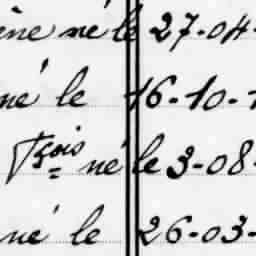 né le 27-04-
né le 16-10-
Fçois né le 3-08-
né le 26-03-